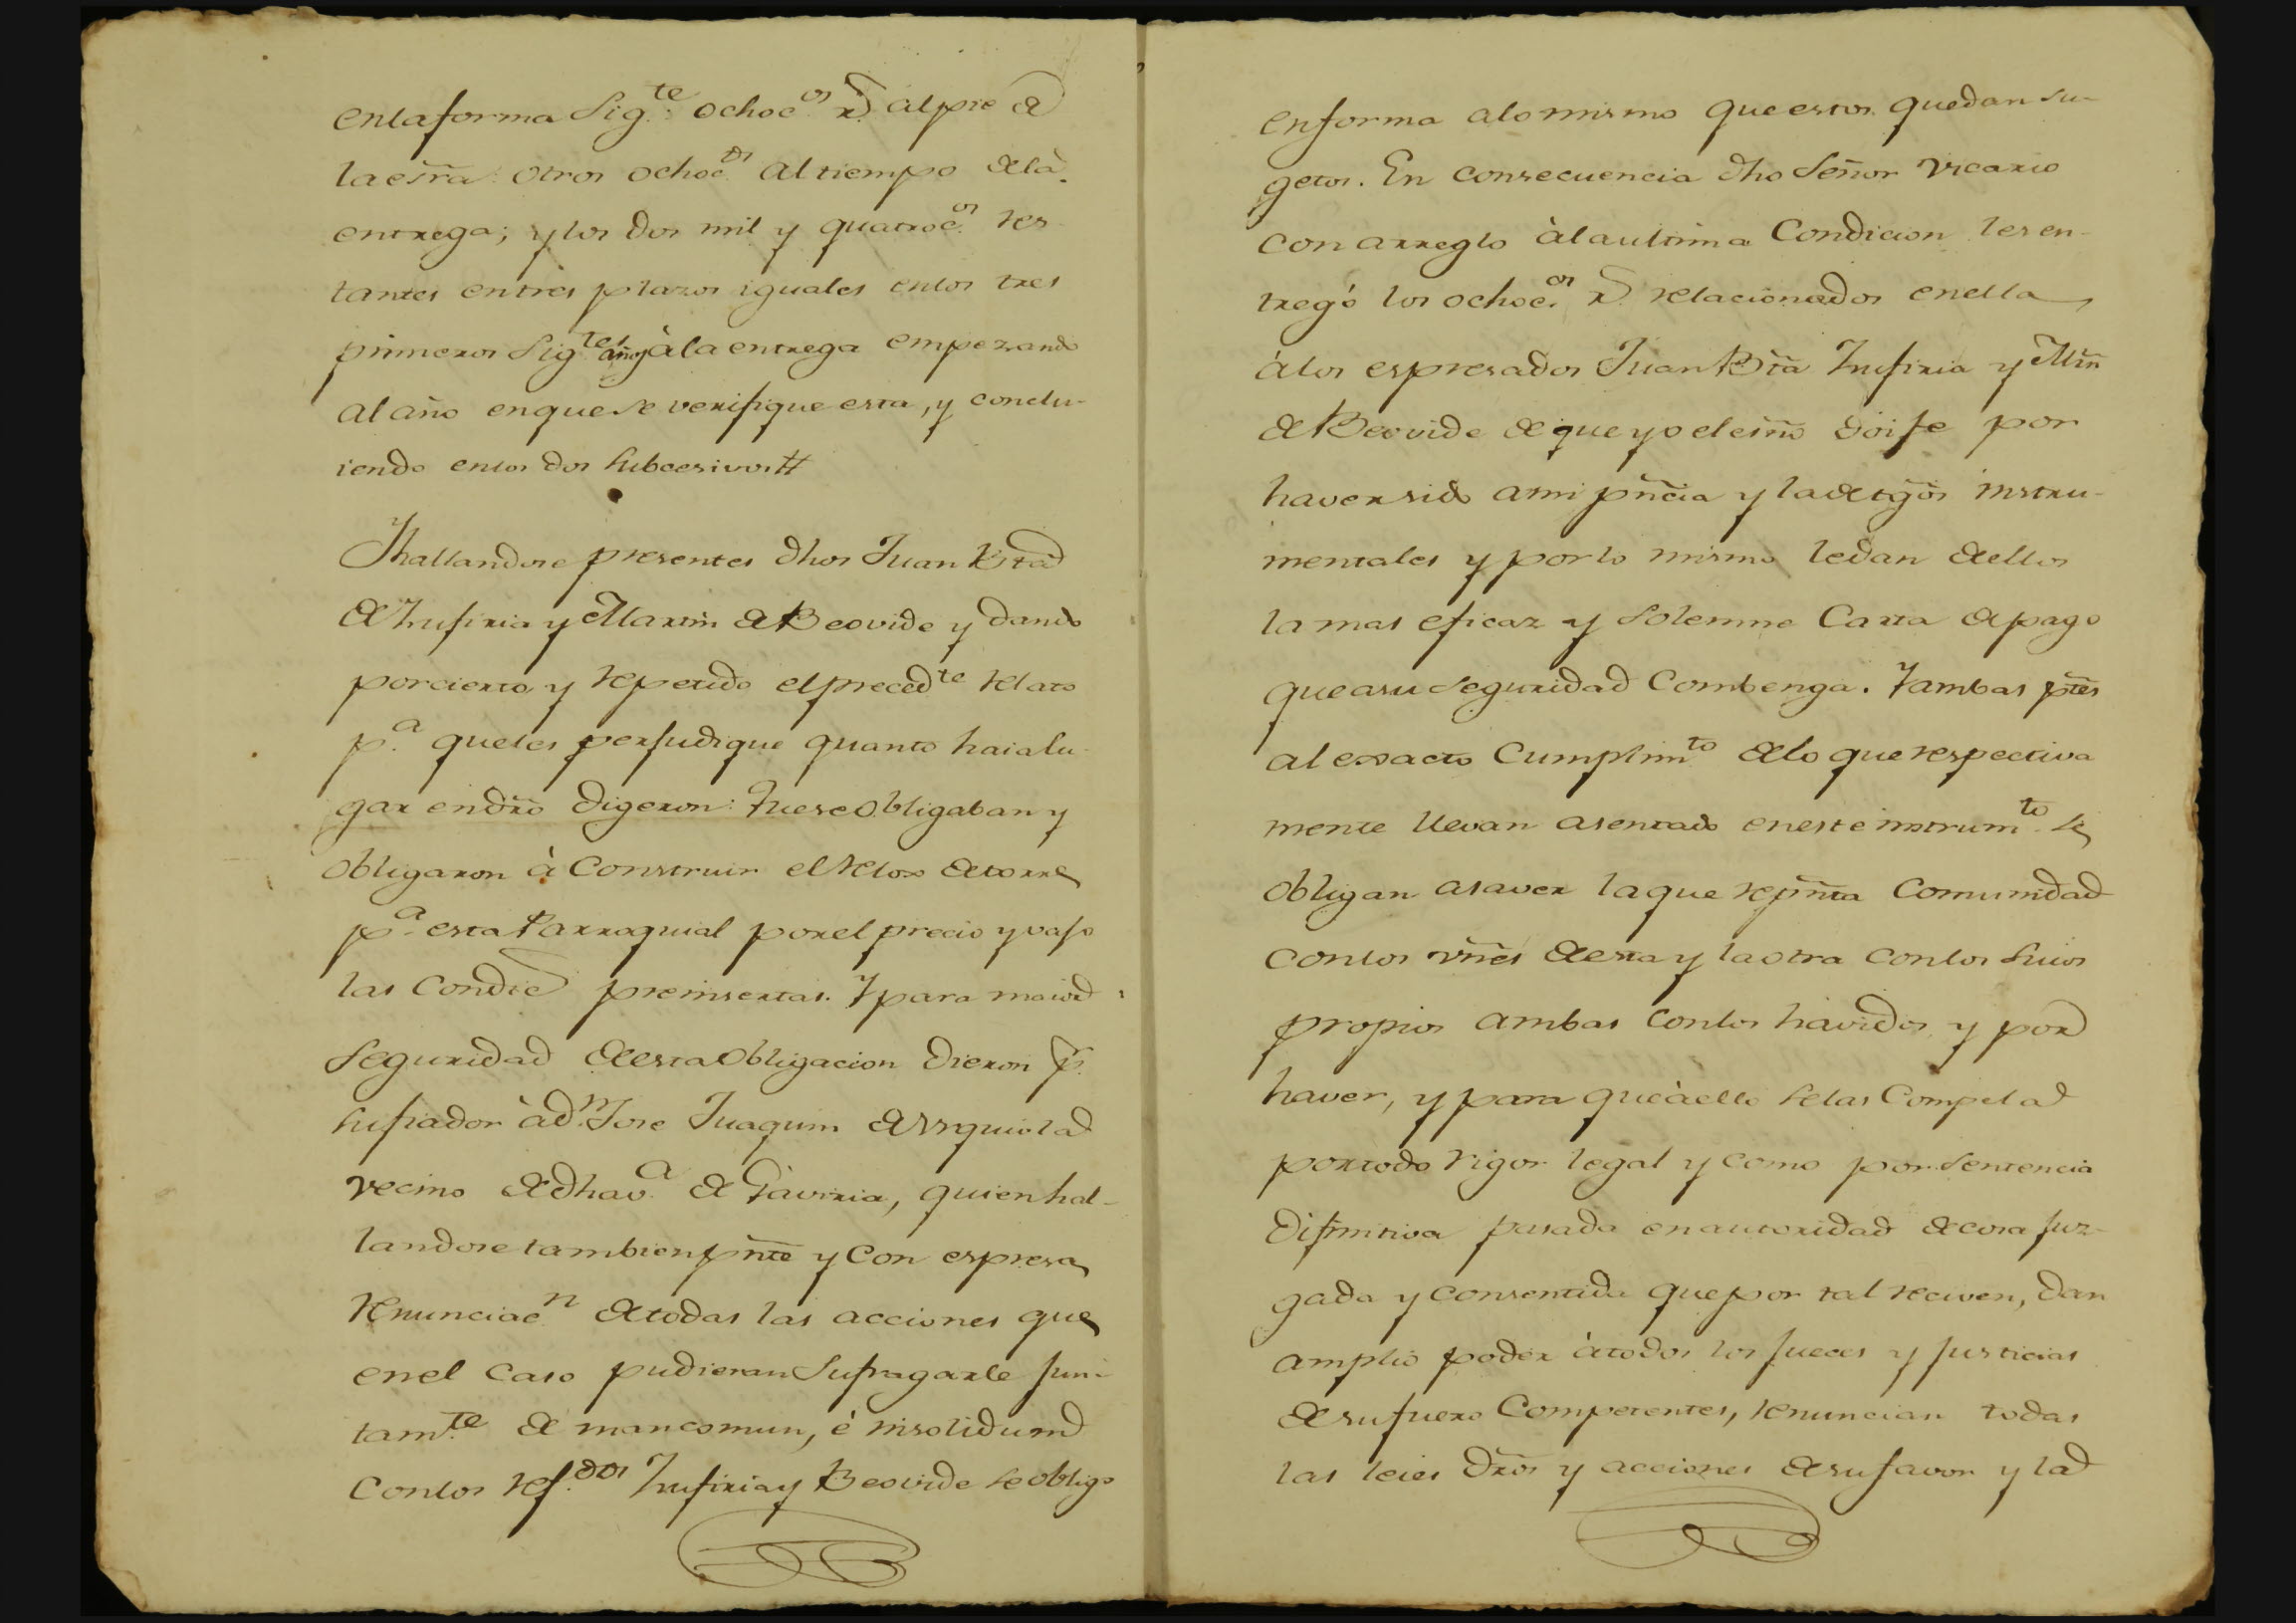 enlaforma Sig.te ochoc.os r.s alpie de
laesr̃a: otros ochoc.os al tiempo dela
entrega; y los dos mil y quatroc.os res-
tantes entres plazos iguales enlos tres
primeros Sig.tes años àla entrega empezando
al año enque se verifique esta, y conclu-
iendo enlos dos subcesivos #
Yhallandose presentes dhos Juan Bta
de Yrusiria y Martin de Beovide y dando
porcierto y repetido elpreced.te relato
p.a queles perjudique quanto haialu-
gar endr̃o digeron: Quese Obligaban y
obligaron à Construir elRelox detorre
p.a esta Parroquial porel precio y vajo
las Condic.s preinsertas. Y para maior
Seguridad deesta Obligacion dieron p.r
sufiador àd.n Jose Juaquin de Urquiola
vecino dedhav.a de Gaviria, quien hal-
landose tambien pñte y Con espresa
Renunciac.n detodas las acciones que
enel caso pudieran Sufragarle jun-
tam.te de mancomun, è insolidum
Conlos Ref.dos Yrusiria y Beovide se obligo
enforma alo mismo que estos quedan su-
getos. En consecuencia dho Señor Vicario
con arreglo àlaultima Condicion les en-
tregó los ochoc.os r.s relacionados enella
àlos espresados Juan Bta Yrusiria y Mñ
de Beovide de que yo elesño doi fe por
haver sido ami pñcia y ladetg̃os instru-
mentales y porlo mismo ledan deellos
la mas eficaz y Solemne Carta depago
queasu Seguridad Combenga. Y ambas ptẽs
al exacto Cumplim.to delo que respectiva
mente llevan asentado eneste instrum.to se
obligan asaver laque repñta Comunidad
conlos vñes deesta y laotra conlos suios
propios ambas conlos havidos y por
haver, y para queàello selas Compela
portodo rigor legal y como por Sentencia
difinitiva pasada enautoridad decosa juz-
gada y consentida que por tal reciven, dan
amplio poder àtodos los jueces y justicias
desufuero Competentes, renuncian todas
las leies dr̃os y acciones desufavor y la